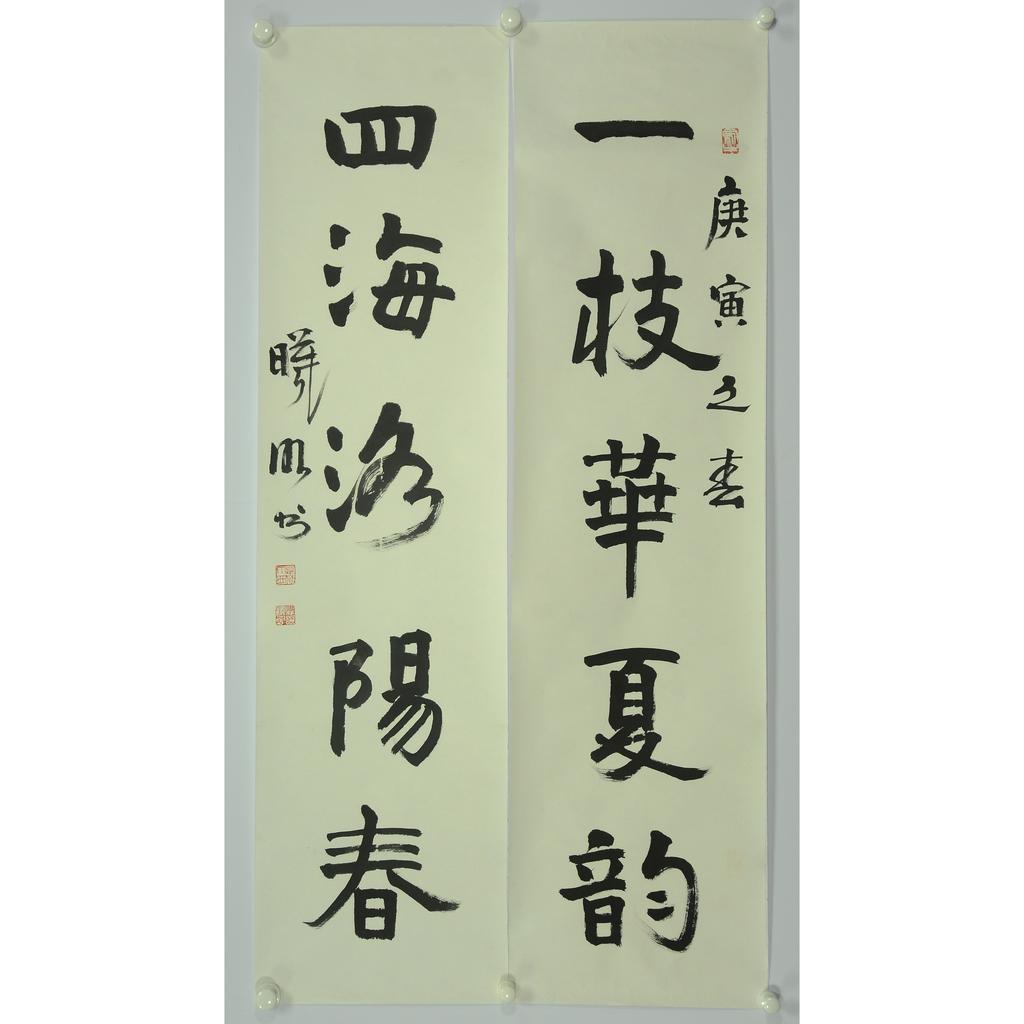 庚寅之春
一枝華夏韵
四海洛陽春